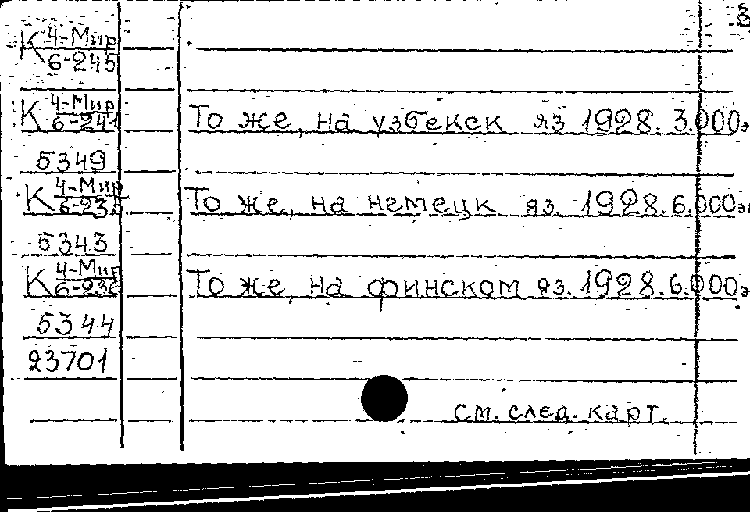 К 4-Мир
6-245
К 4-Мир
6-241 То же, на узбекск яз 1928. 3.000э
5349
К 4-Мир
То же, на немецк яз. 1928. 6.000э
5343
К 4-Мир
6-236 То же, на финском яз. 1928. 6.000э
5344
23701
см. след. карт.